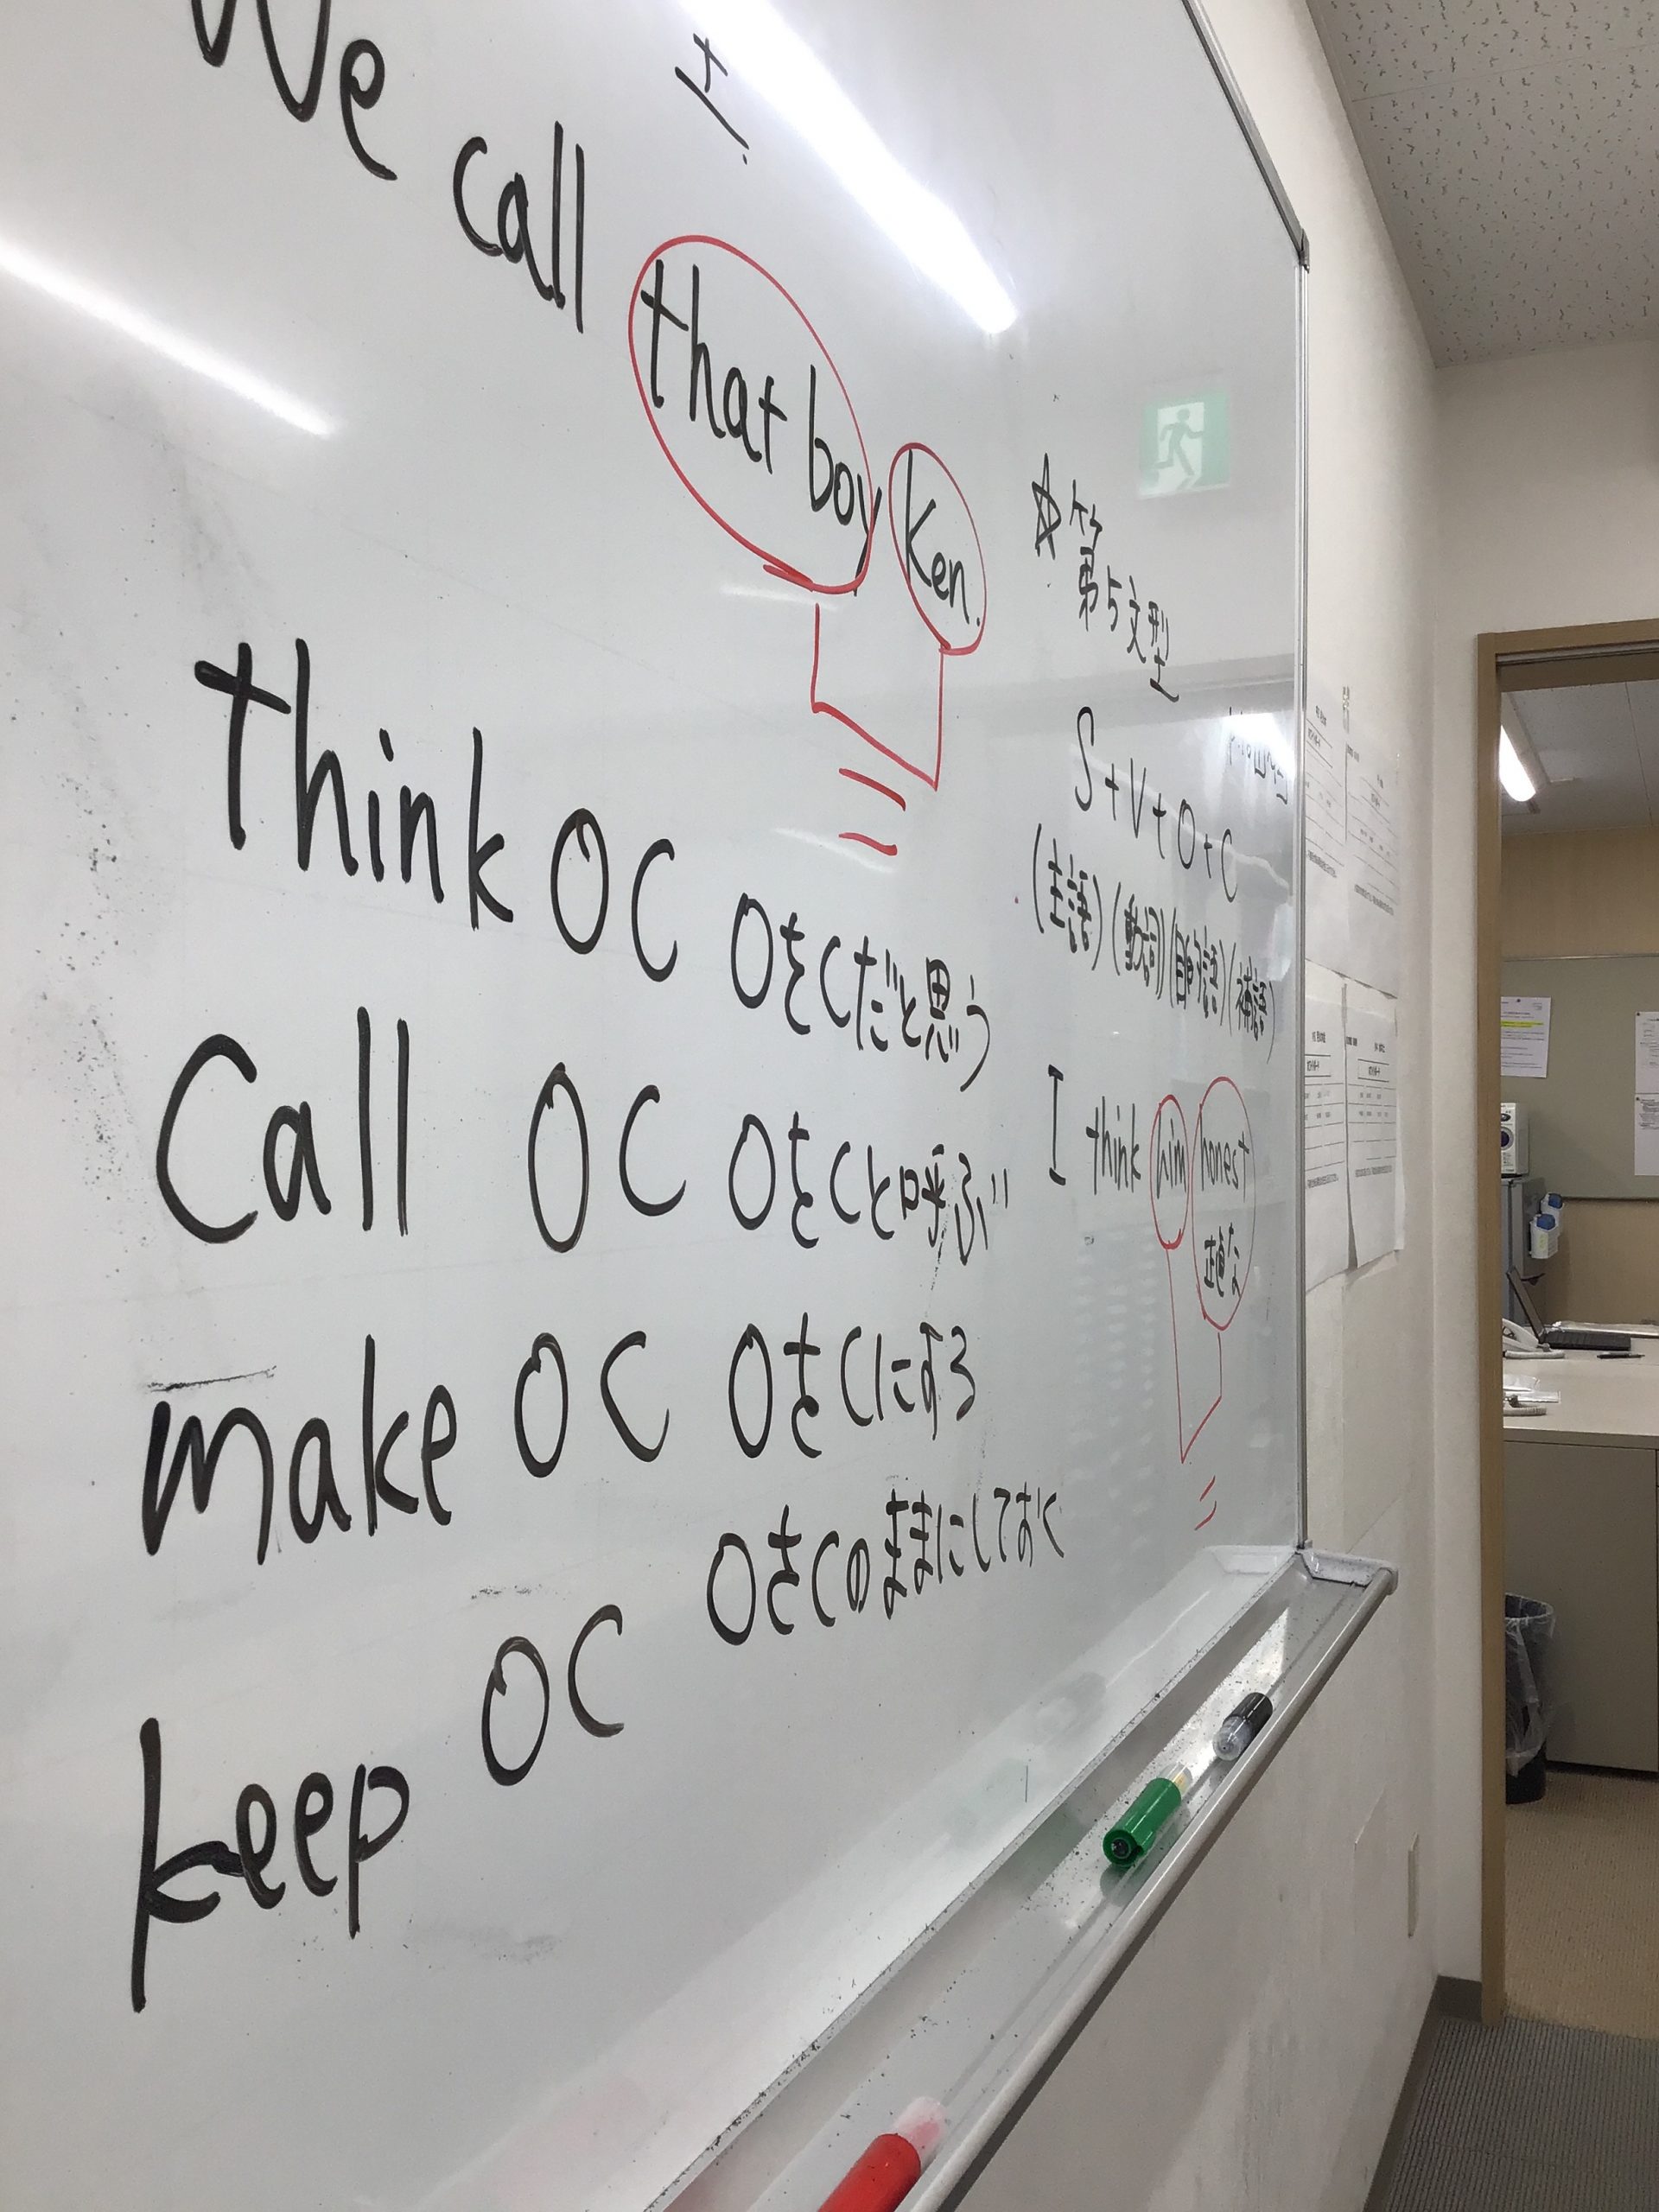 We call that boy Ken.
think OC OをCだと思う
Call OC OをCと呼ぶ
make OC OをCにする
keep OC OをCのままにしておく
☆第5文型
S+V+O+C
(主語)(動詞)(目的語)(補語)
I think him honest
正直な